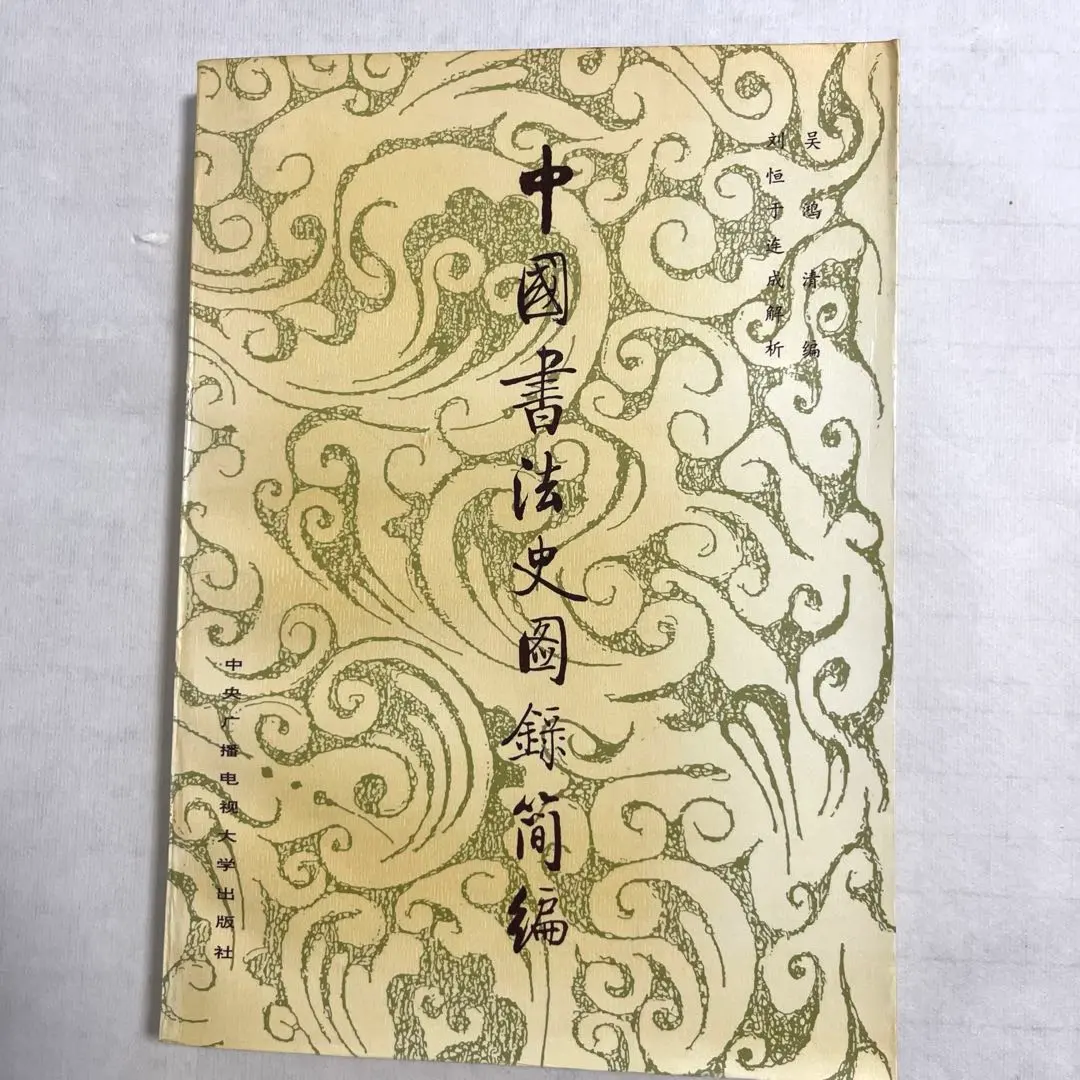 吴鸿清编
刘恒于连成解析
中國書法史图錄简编
中央广播电视大学出版社